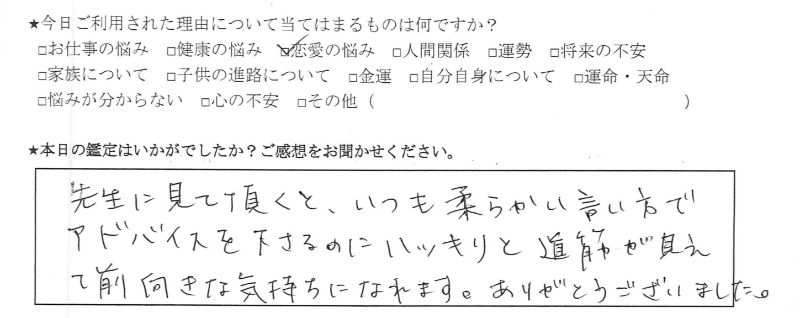 ★今日ご利用された理由について当てはまるものは何ですか？
□お仕事の悩み □健康の悩み ☑恋愛の悩み □人間関係 □運勢 □将来の不安
□家族について □子供の進路について □金運 □自分自身について □運命・天命
□悩みが分からない □心の不安 □その他（ ）
★本日の鑑定はいかがでしたか？ご感想をお聞かせください。
先生に見て頂くと、いつも柔らかい言い方で
アドバイスを下さるのにハッキリと道筋が見え
て前向きな気持ちになれます。ありがとうございました。